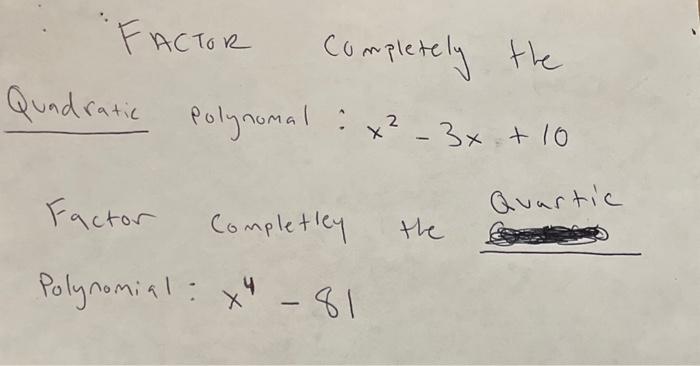 FACTOR Completely the
Quadratic Polynomal : x² - 3x + 10
Factor Completley the Quartic
Polynomial : x⁴ - 81